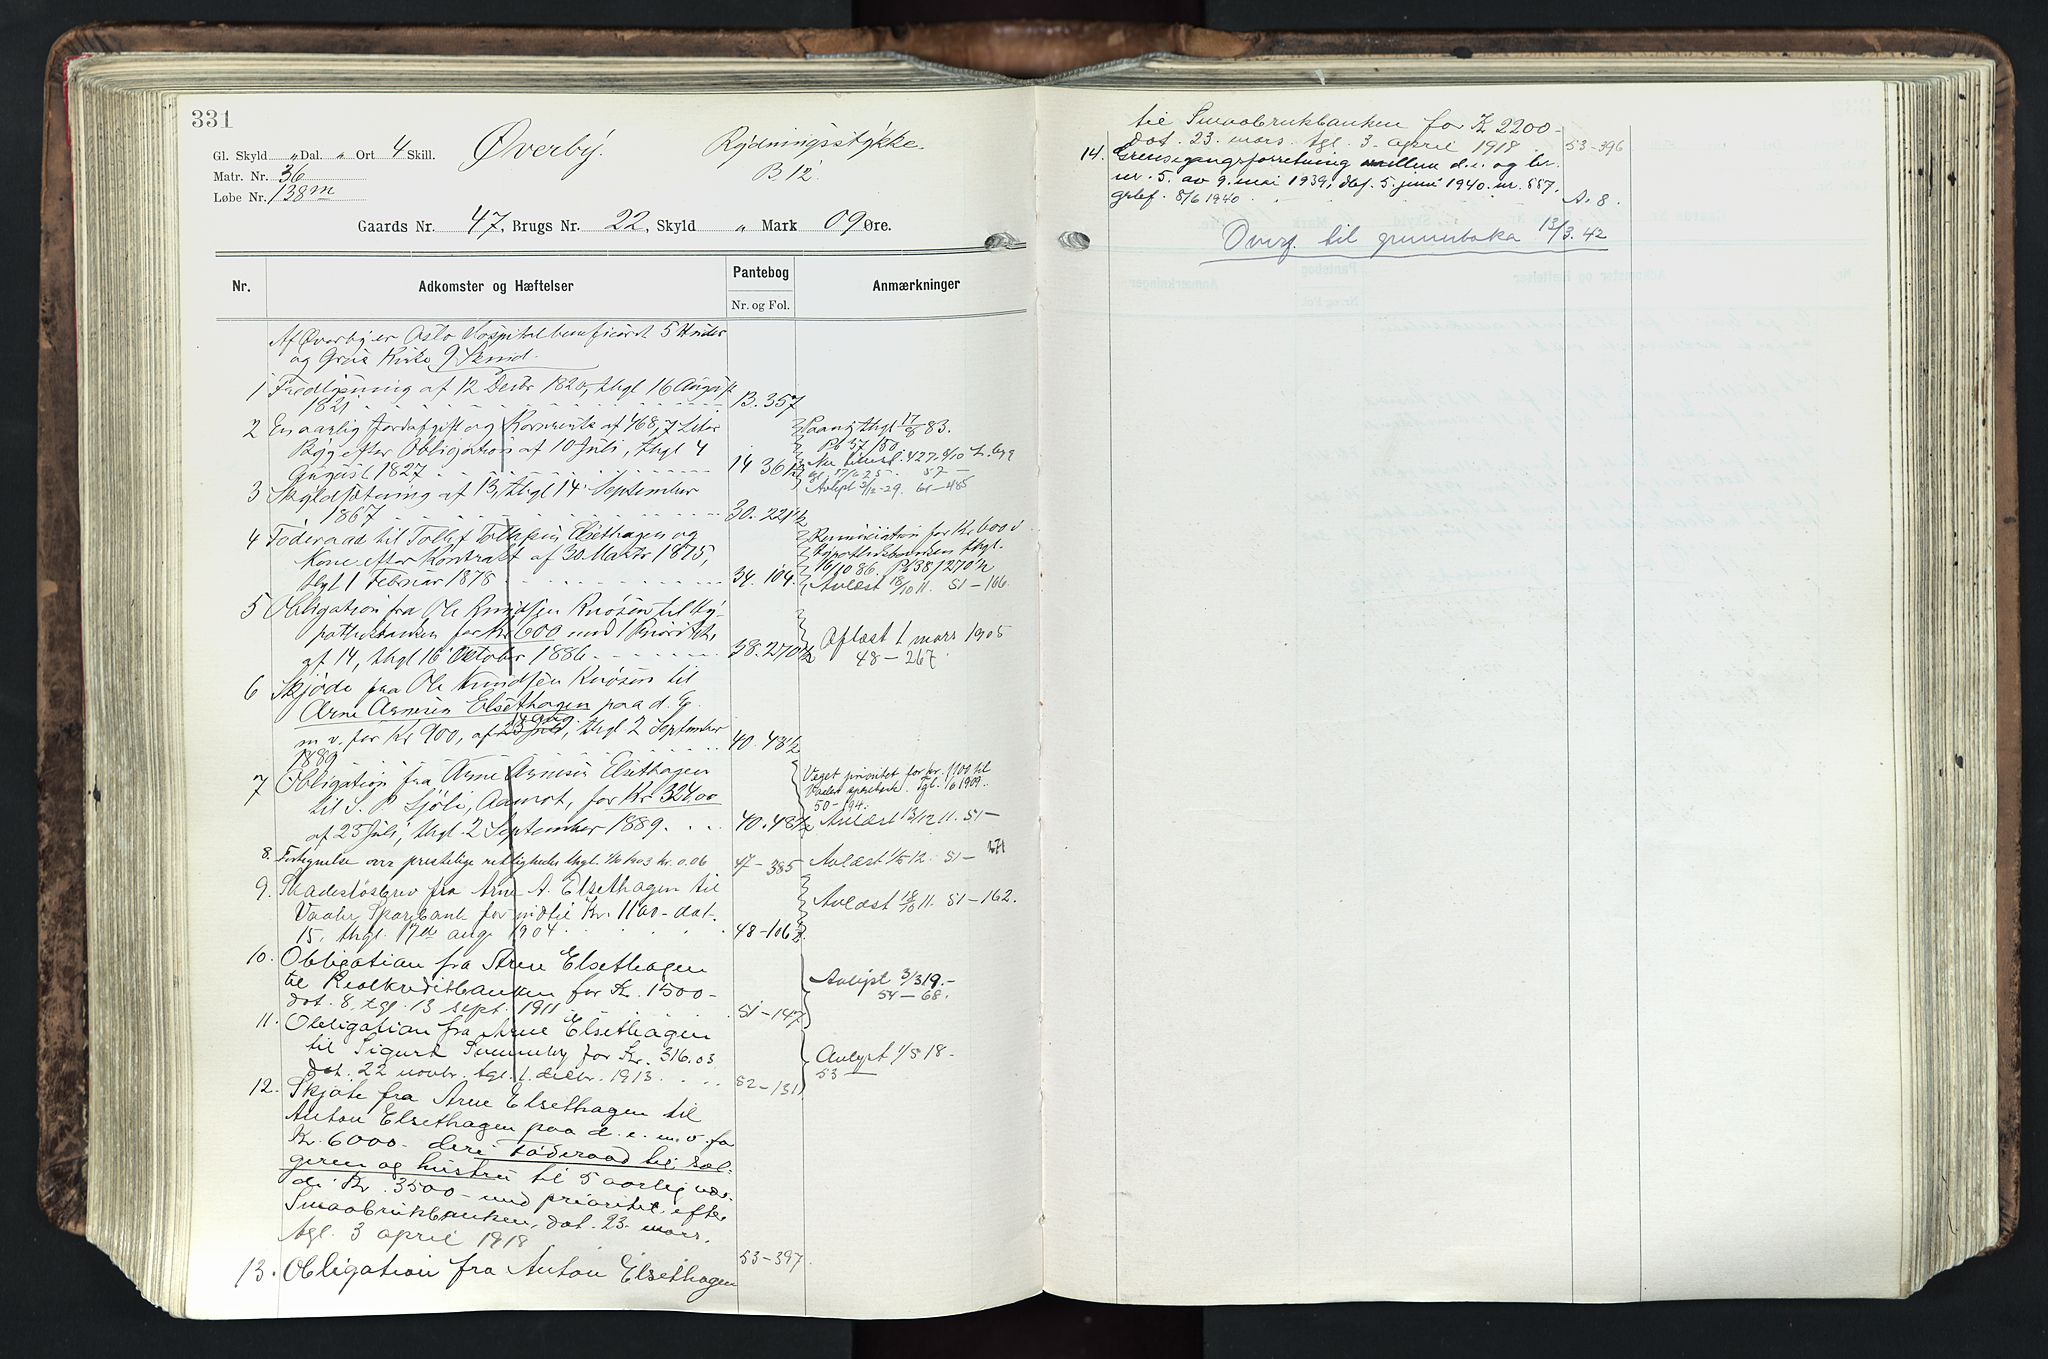 331
Gl. Skyld " Dal. " Ort 4 Skill. Øverby. Rydningsstykke.
Matr. Nr. 36 B. 12.
Løbe Nr. 138m
Gaards Nr. 47, Brugs Nr. 22, Skyld " Mark 09 Øre.
Nr. Adkomster og Hæftelser Pantebog Anmærkninger
Nr. og Fol.
Af Øverby er Oslo Hospital beneficeret 5 Hinder
og Kirke 9 Skind.
1 Fredlysning af 12 Decbr 1820, thgl 16 August
1821 13. 357
2 En aarlig Jordafgift og Kornrente af 468,7 Liter
Byg efter Obligation af 10 Juli, thgl 4
August 1827 14 361½
Paany thgl 17/8 83.
Pb 37/180
Avlyst 3/12-29. 61-485
3 Skyldsætning af 13, thgl 14 September
1867 30. 221½
4 Føderaad til Tollef Tollefsen Elsethagen og
Kone efter Kontrakt af 30 Marts 1875,
thgl 1 Februar 1878 34. 104.
Renunciation for Kr 600 v
Hypothekbanken thgl.
16/10 86. Pb 38/270½
Avlæst 18/10 11. 51-166.
5 Obligation fra Ole Knudsen Knøsen til Hy-
pothekbanken for Kr 600 med 1 Prioritet,
af 14, thgl 16 Oktober 1886 38. 270½
Aflæst 1 mars 1905
48-267.
6 Skjøde fra Ole Knudsen Knøsen til
Arne Arnesen Elsethagen paa d. E.
m v. for Kr 900, af 14 Aug., thgl 2 September
1889 40. 48½
7 Obligation fra Arne Arnesen Elsethagen
til S. P. Sjöli, Aamot, for Kr 324,00
af 25 Juli, thgl 2 September 1889. 40. 48½
Veget prioritet for kr. 1100 til
Vaaler sparebank. Tgl. 1/6 1909.
50-194.
Avlæst 13/12 11. 51-
171
8. Fortegnelse over prestelige rettigheder thgl. 1/10 1903 kr. 0.06 47-385 Avlæst 1/5 12. 51-
9. Skadesløsbrev fra Arne A. Elsethagen til
Vaaler Sparebank for indtil Kr. 1100- dat.
15, thgl. 17de aug. 1904. 48-106½
Avlæst 18/10 11. 51-162.
10. Obligation fra Arne Elsethagen
til Realkreditbanken for Kr. 1500-
dat. 8, tgl. 13 sept. 1911 51-147
Avlyst 3/3 19.-
54-68.
11. Obligation fra Arne Elsethagen
til Sigurd Svenneby for Kr. 316.03
dat. 22 novbr. tgl. 1. decbr. 1913. 52-131
Avlyst 1/5 18.-
53
12. Skjøte fra Arne Elsethagen til
Anton Elsethagen paa d. e. m. v. for
Kr. 6000- deri Føderaad til sæl-
geren og hustru til 5 aarlig vær-
di Kr. 3500- med prioritet efter
Smaabrukbanken, dat. 23. mars,
tgl. 3 april 1918 53-397
13. Obligation fra Anton Elsethagen
til Smaabrukbanken for Kr 2200-
dat. 23. mars. tgl. 3. april 1918. 53-396
14. Grensegangsforretning mellem d. e. og br.
nr. 5. av 9. mai 1939, dbf. 5. juni 1940. nr. 887.
grbf. 8/6 1940. A. 8.
Overf. til grunnboka 13/3. 42